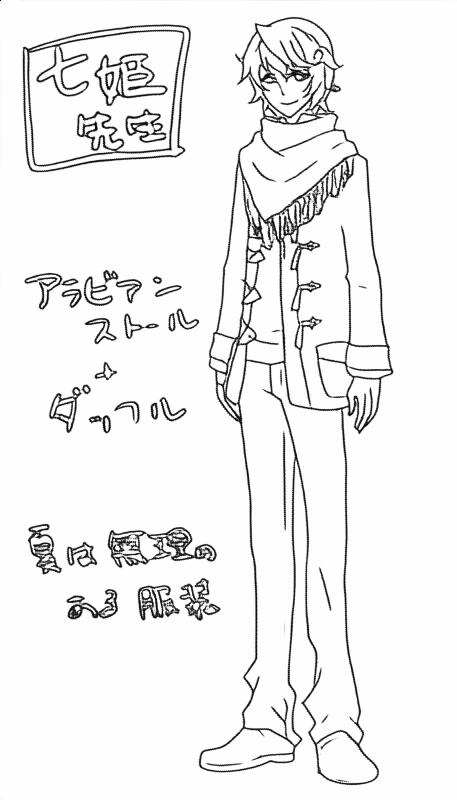 七姫
先生
アラビアン
ストール
+
ダッフル
夏は無理の
ある服装